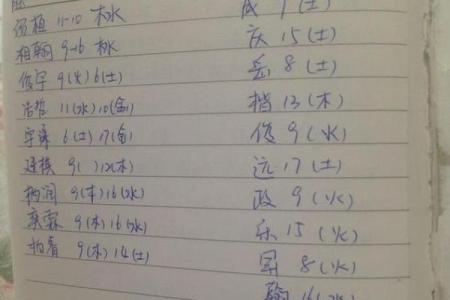 栢植 11-10 木水
相翰 9-16 木水
俊宇 9(火)6(土)
浩哲 11(水)10(金)
宇 6(土)17(金)
建棋 9( )12(木)
柄润 9(木)16(水)
奕霖 9(木)16(水)
柏睿 9(木)14(土)
成 7(土)
庆 15(土)
岳 8(土)
楷 13(木)
俊 9(火)
远 17(土)
政 9(火)
乐 15(火)
昇 8(火)
翰 16(水)